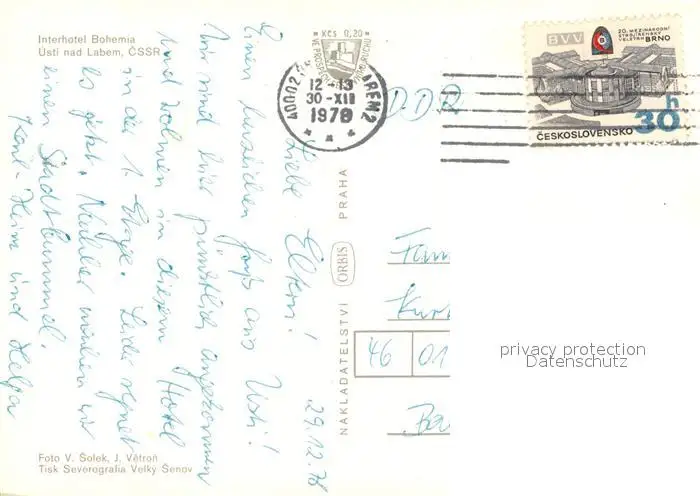 Interhotel Bohemia
Ústí nad Labem, ČSSR
29.12.78
Liebe Eltern!
Einen herzlichen Gruß aus Usti!
Wir sind hier pünktlich angekommen
und wohnen in diesem Hotel
in der 1. Etage. Leider regnet
es jetzt. Nachher machen wir
einen Stadtbummel.
Karl-Heinz und Helga
Foto V. Šolek, J. Větroň
Tisk Severografia Velký Šenov
NAKLADATELSTVÍ ORBIS PRAHA
Kčs 0,20
40002
12-13
30-XII
1978
BVV
20. MEZINÁRODNÍ
STROJÍRENSKÝ
VELETRH BRNO
ČESKOSLOVENSKO 30h
DDR
Fam
Kur
46 01
privacy protection
Datenschutz